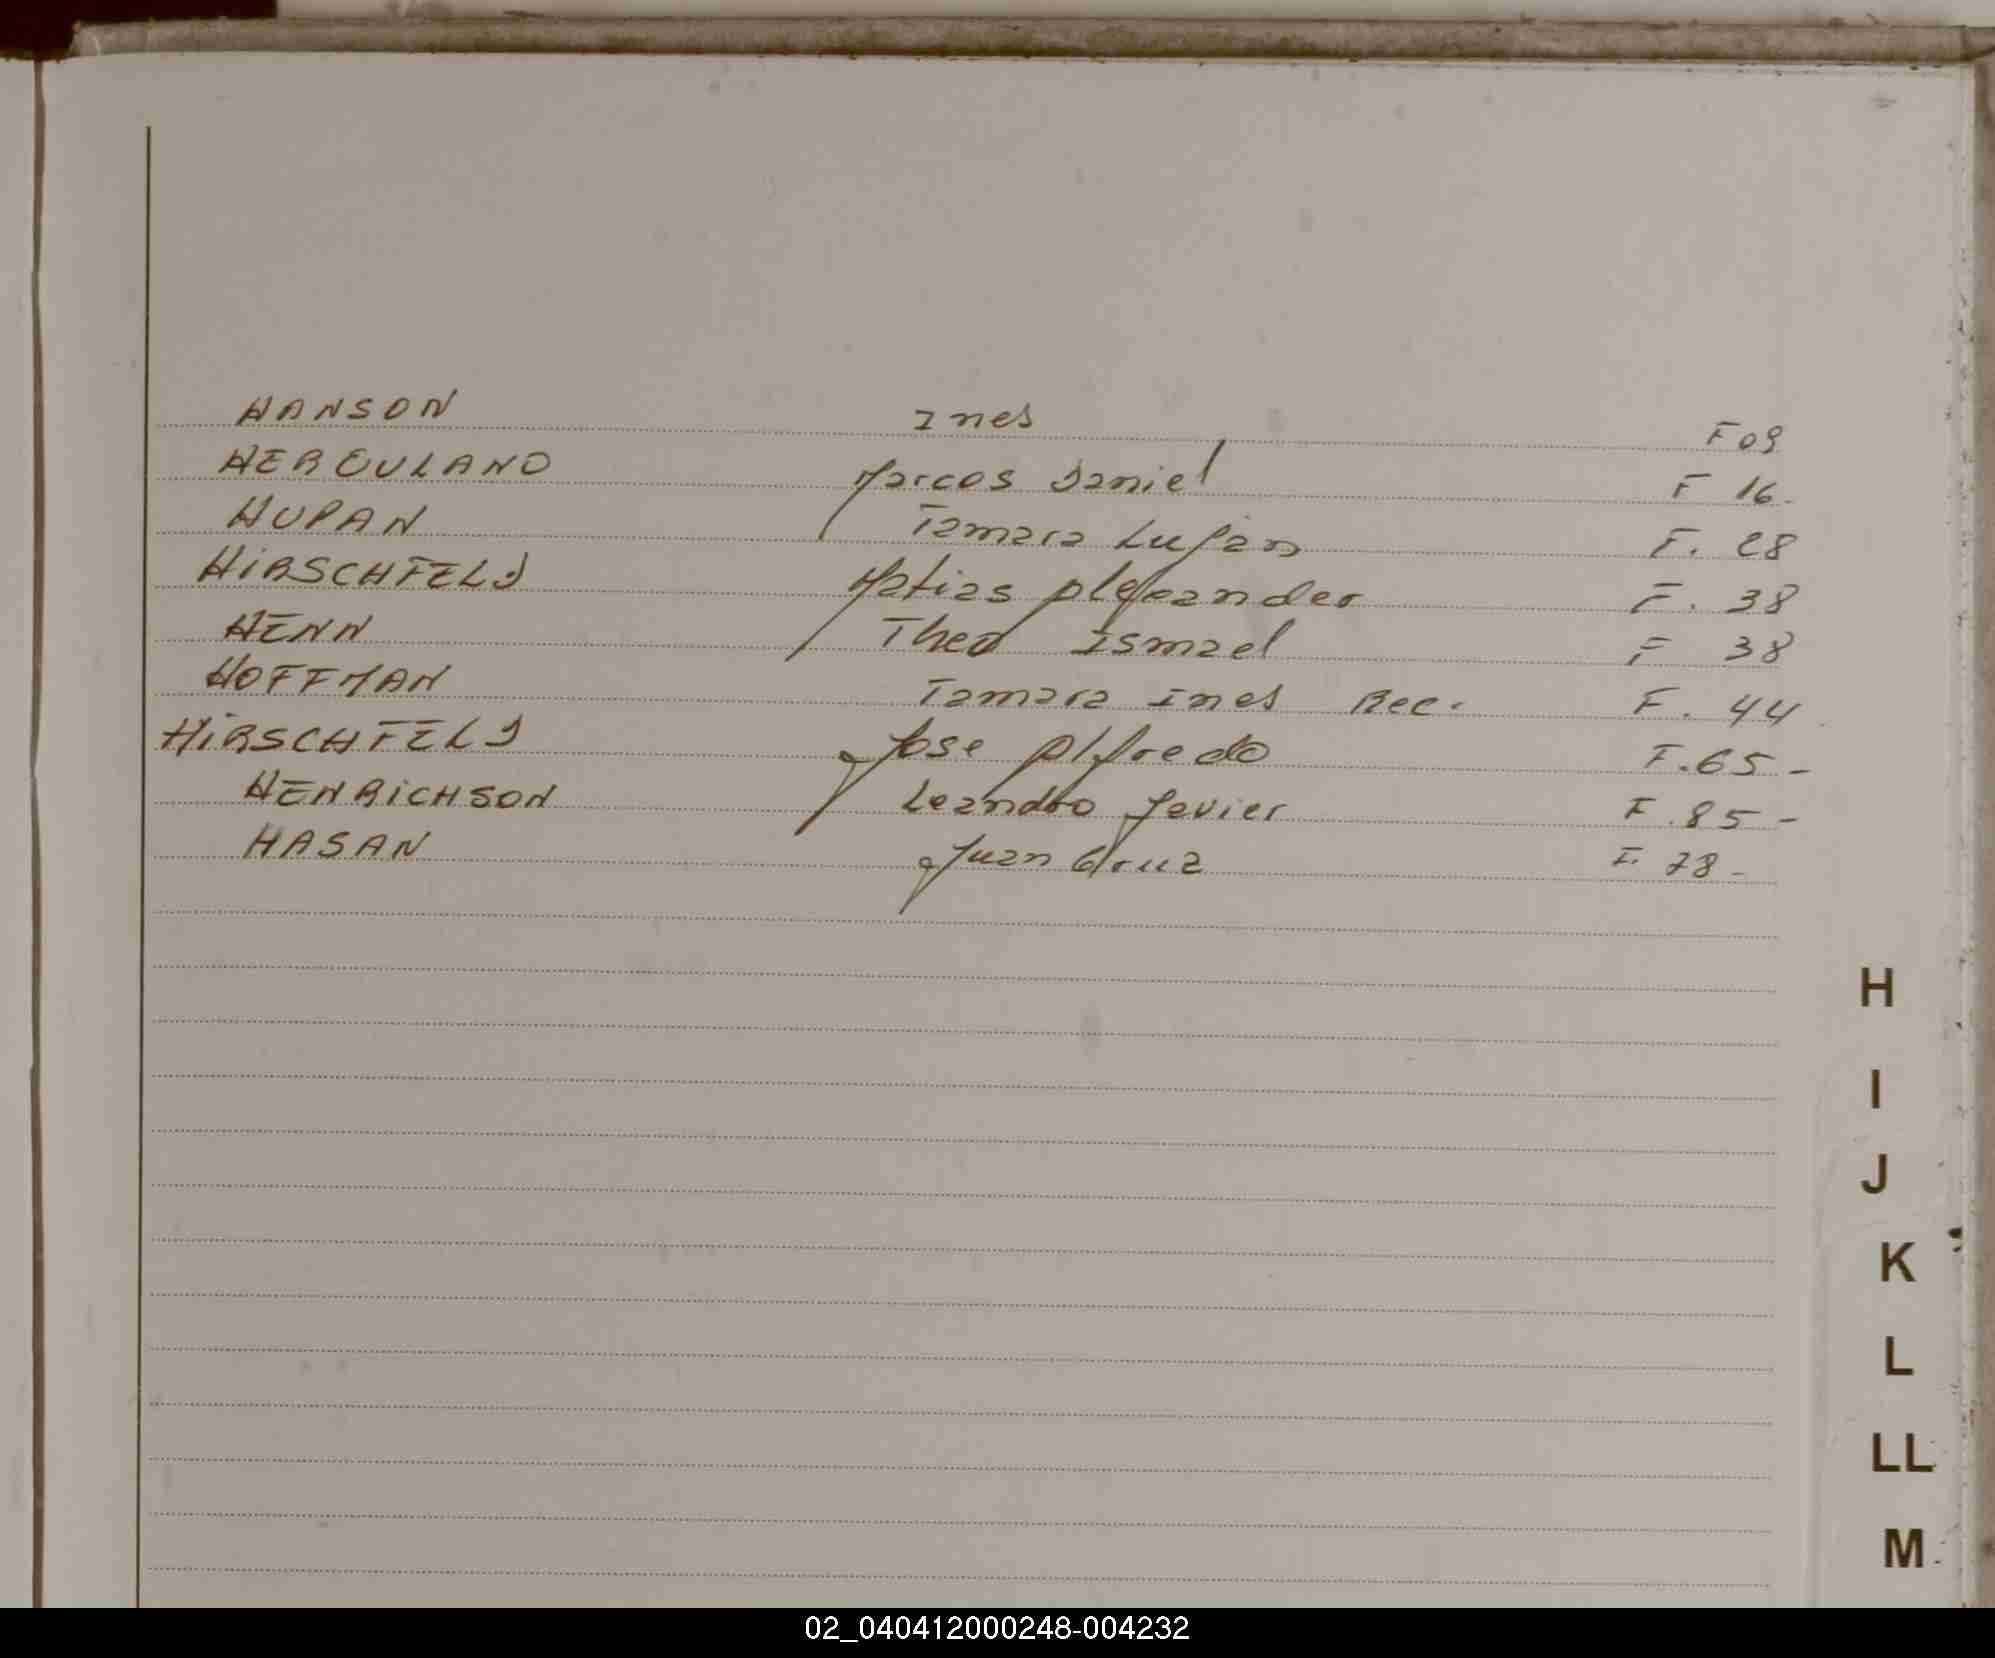 HANSON Ines F 09
HERCULANO Marcos Daniel F 16.
HUPAN Tamara Lujan F. 28
HiRSCHFELD Matias Alexander F. 38
HENN Theo Ismael F 38
HOFFMAN Tamara Ines Rec. F. 44
HiRSCHFELD Jose Alfredo F. 65 -
HENRiCHSON Leandro Javier F. 85 -
HASAN Juan Cruz F. 78 -
H
I
J
K
L
LL
M
02_040412000248-004232